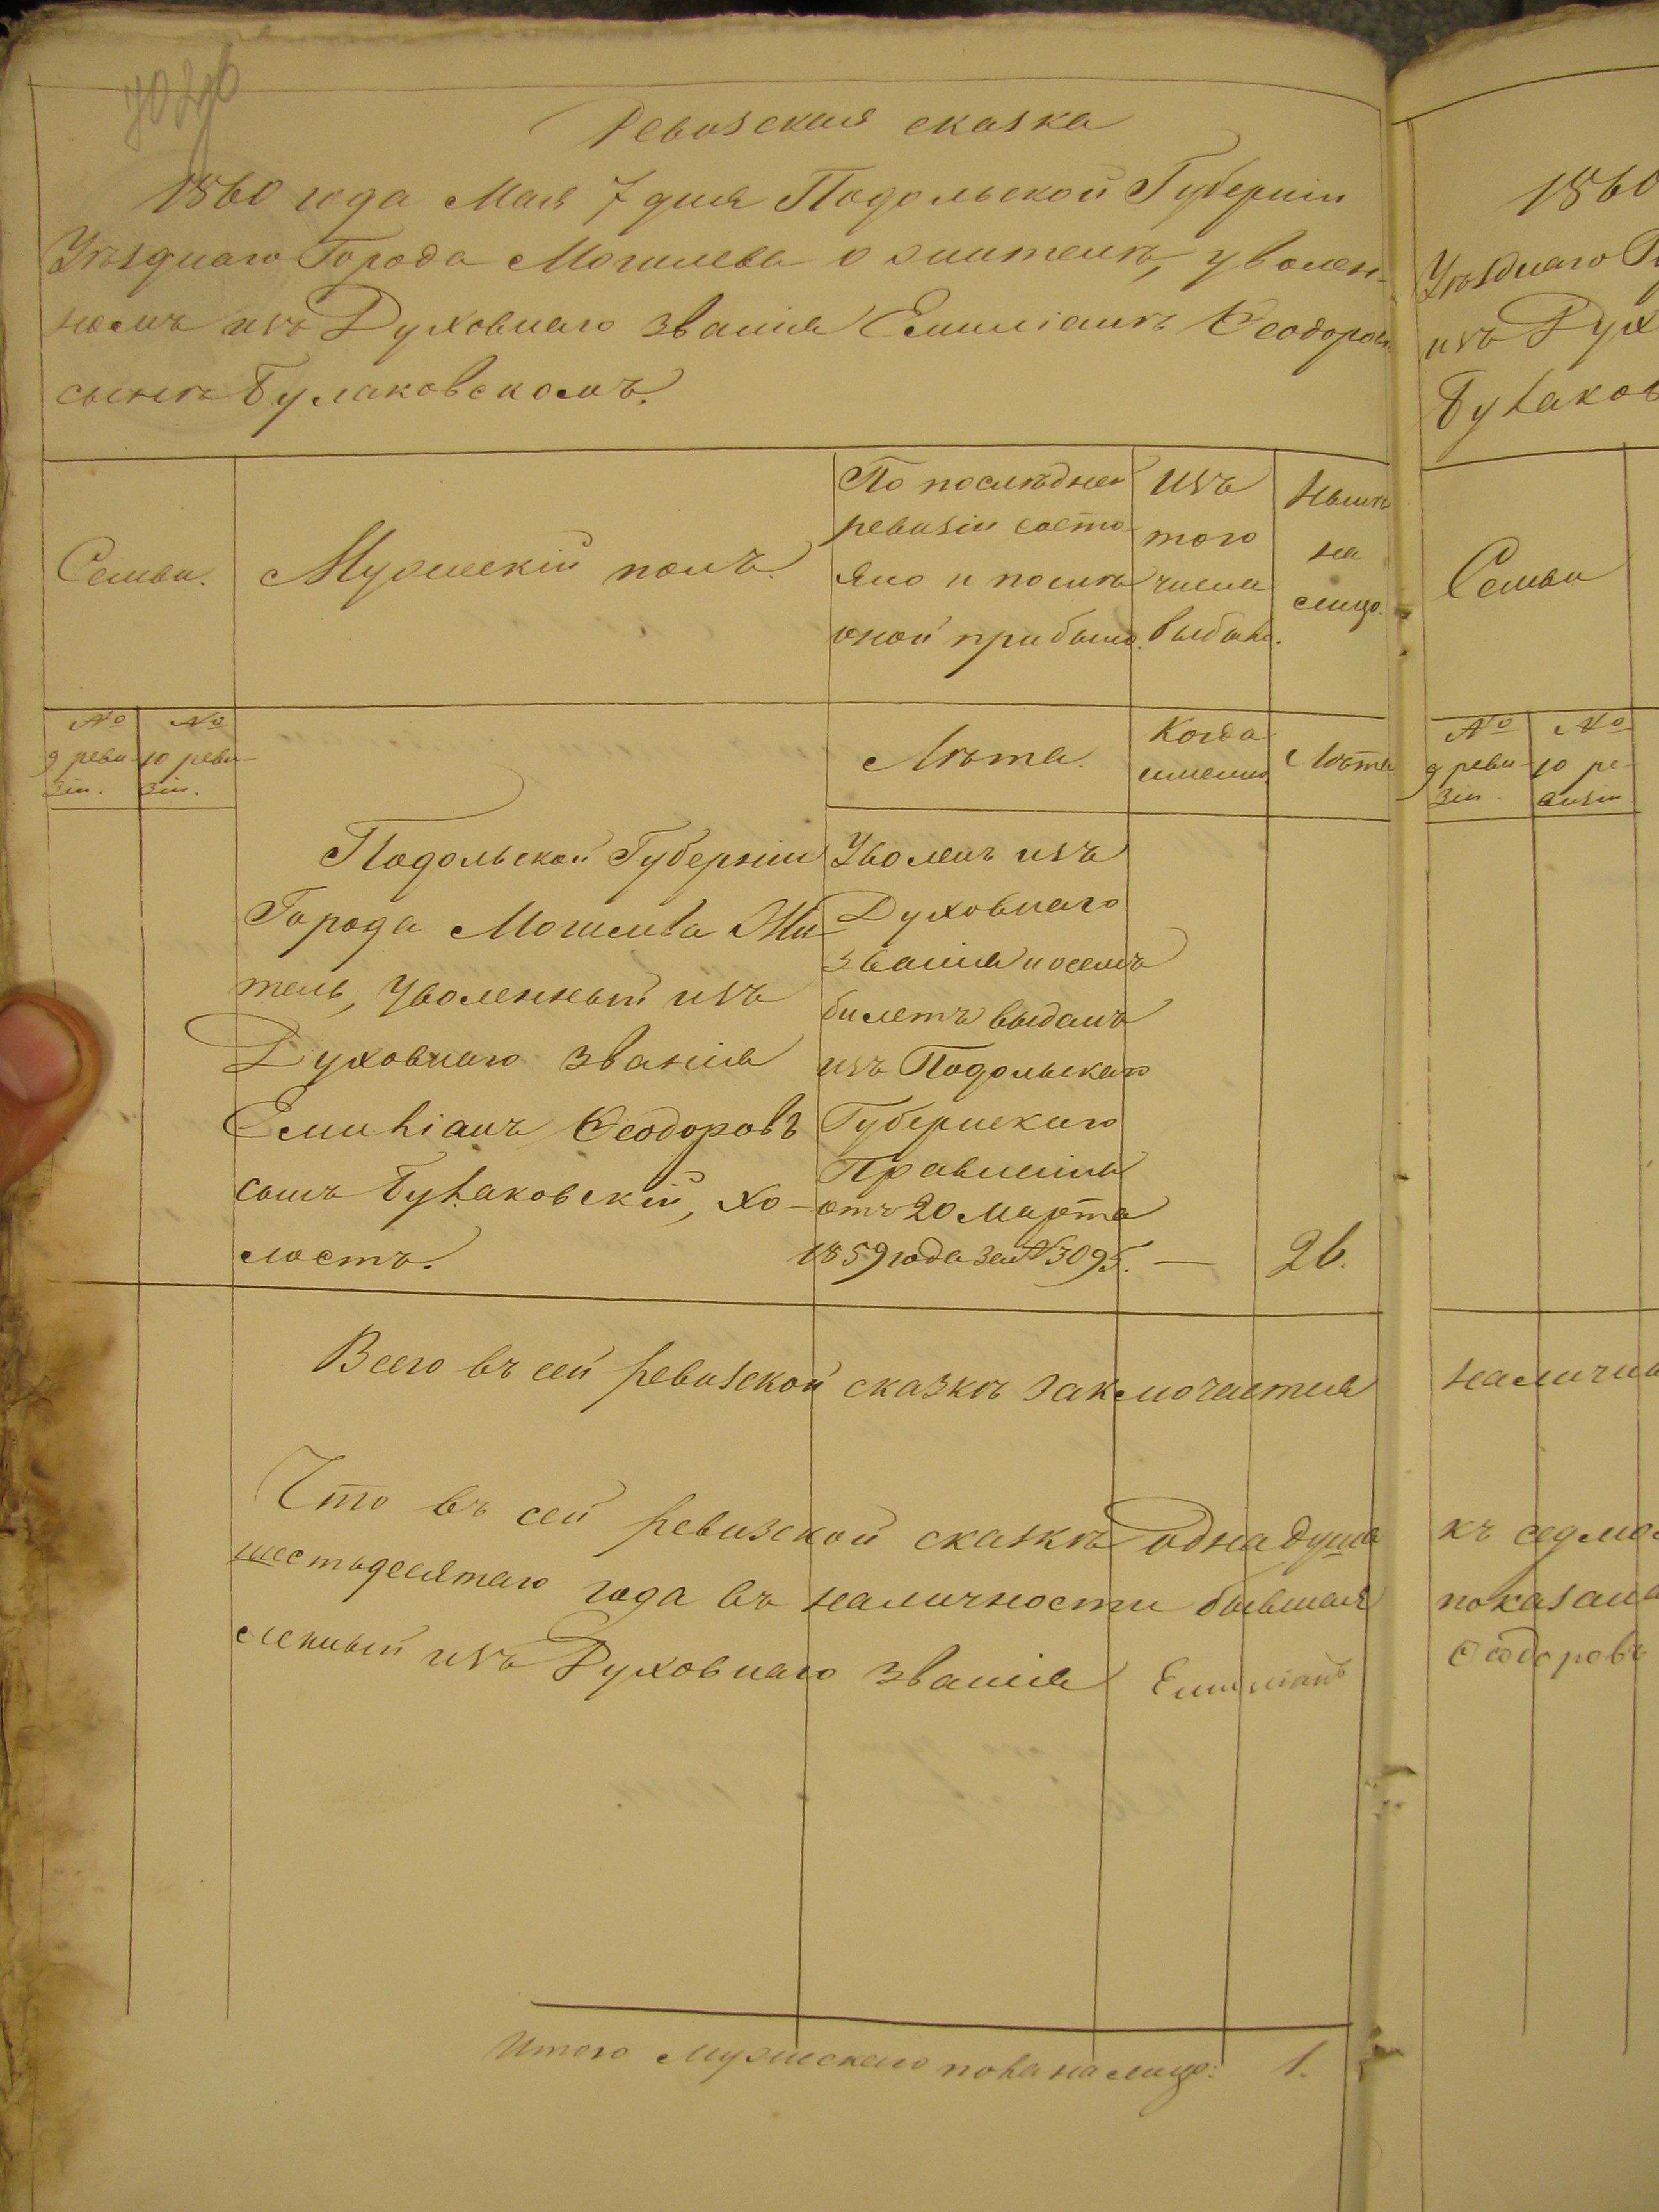 Ревизская сказка
1860 года Мая 7 дня Подольской Губерніи
Уѣзднаго Города Могилева о жителѣ, уволен-
номъ изъ Духовнаго званія Емиліанѣ Ѳеодоров
сынѣ Булаковскомъ.
Семьи.
Мужескій полъ.
По послѣдней
ревизіи состо-
яло и послѣ
оной прибыло.
Изъ
того
числа
выбыло.
Нынѣ
на
лицо.
№
9 реви-
зіи.
№
10 реви-
зіи.
Лѣта.
Когда
именно
Лѣта
Подольской Губерніи
Города Могилева Жи-
тель, уволенный изъ
Духовнаго званія
Емиліанъ Ѳеодоровъ
сынъ Булаковскій, хо-
лостъ.
Уволенъ изъ
Духовнаго
званія и о семъ
билетъ выданъ
изъ Подольскаго
Губернскаго
Правленія
отъ 20 Марта
1859 года за № 3095. — 26.
Всего въ сей ревизской сказкѣ заключается
Что въ сей ревизской сказкѣ одна душа
шестьдесятаго года въ наличности бывшая
ленный изъ Духовнаго званія Емиліанъ
Итого мужескаго пола на лицо: 1.
1860
Уѣзднаго Г
изъ Дух
Булаков
Семьи
№
9 реви-
зіи.
№
10 ре-
визіи
наличны
къ седмо
показана
Ѳеодоровъ